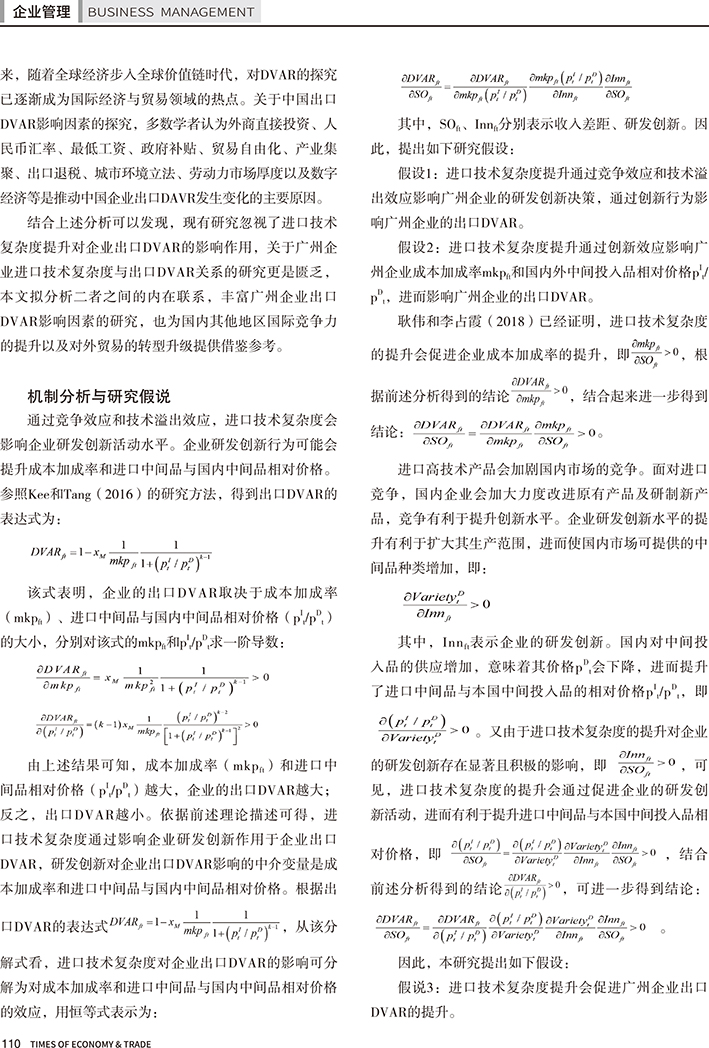 企业管理 BUSINESS MANAGEMENT
来，随着全球经济步入全球价值链时代，对DVAR的探究
已逐渐成为国际经济与贸易领域的热点。关于中国出口
DVAR影响因素的探究，多数学者认为外商直接投资、人
民币汇率、最低工资、政府补贴、贸易自由化、产业集
聚、出口退税、城市环境立法、劳动力市场厚度以及数字
经济等是推动中国企业出口DAVR发生变化的主要原因。
结合上述分析可以发现，现有研究忽视了进口技术
复杂度提升对企业出口DVAR的影响作用，关于广州企
业进口技术复杂度与出口DVAR关系的研究更是匮乏，
本文拟分析二者之间的内在联系，丰富广州企业出口
DVAR影响因素的研究，也为国内其他地区国际竞争力
的提升以及对外贸易的转型升级提供借鉴参考。
机制分析与研究假说
通过竞争效应和技术溢出效应，进口技术复杂度会
影响企业研发创新活动水平。企业研发创新行为可能会
提升成本加成率和进口中间品与国内中间品相对价格。
参照Kee和Tang（2016）的研究方法，得到出口DVAR的
表达式为：
$DVAR_{ft}=1-x_M\frac{1}{mkp_{ft}}\frac{1}{1+(p_t^I/p_t^D)^{k-1}}$
该式表明，企业的出口DVAR取决于成本加成率
（mkp_{ft}）、进口中间品与国内中间品相对价格（p^I_t/p^D_t）
的大小，分别对该式的mkp_{ft}和p^I_t/p^D_t求一阶导数：
$\frac{\partial DVAR_{ft}}{\partial mkp_{ft}}=x_M\frac{1}{mkp_{ft}^2}\frac{1}{1+(p_t^I/p_t^D)^{k-1}}>0$
$\frac{\partial DVAR_{ft}}{\partial(p_t^I/p_t^D)}=(k-1)x_M\frac{1}{mkp_{ft}}\frac{(p_t^I/p_t^D)^{k-2}}{[1+(p_t^I/p_t^D)^{k-1}]^2}>0$
由上述结果可知，成本加成率（mkp_{ft}）和进口中
间品相对价格（p^I_t/p^D_t）越大，企业的出口DVAR越大；
反之，出口DVAR越小。依据前述理论描述可得，进
口技术复杂度通过影响企业研发创新作用于企业出口
DVAR，研发创新对企业出口DVAR影响的中介变量是成
本加成率和进口中间品与国内中间品相对价格。根据出
口DVAR的表达式$DVAR_{ft}=1-x_M\frac{1}{mkp_{ft}}\frac{1}{1+(p_t^I/p_t^D)^{k-1}}$，从该分
解式看，进口技术复杂度对企业出口DVAR的影响可分
解为对成本加成率和进口中间品与国内中间品相对价格
的效应，用恒等式表示为：
$\frac{\partial DVAR_{ft}}{\partial SO_{ft}}=\frac{\partial DVAR_{ft}}{\partial mkp_{ft}(p_t^I/p_t^D)}\frac{\partial mkp_{ft}(p_t^I/p_t^D)}{\partial Inn_{ft}}\frac{\partial Inn_{ft}}{\partial SO_{ft}}$
其中，SO_{ft}、Inn_{ft}分别表示收入差距、研发创新。因
此，提出如下研究假设：
假设1：进口技术复杂度提升通过竞争效应和技术溢
出效应影响广州企业的研发创新决策，通过创新行为影
响广州企业的出口DVAR。
假设2：进口技术复杂度提升通过创新效应影响广
州企业成本加成率mkp_{ft}和国内外中间投入品相对价格p^I_t/
p^D_t，进而影响广州企业的出口DVAR。
耿伟和李占霞（2018）已经证明，进口技术复杂度
的提升会促进企业成本加成率的提升，即$\frac{\partial mkp_{ft}}{\partial SO_{ft}}>0$，根
据前述分析得到的结论$\frac{\partial DVAR_{ft}}{\partial mkp_{ft}}>0$，结合起来进一步得到
结论：$\frac{\partial DVAR_{ft}}{\partial SO_{ft}}=\frac{\partial DVAR_{ft}}{\partial mkp_{ft}}\frac{\partial mkp_{ft}}{\partial SO_{ft}}>0$。
进口高技术产品会加剧国内市场的竞争。面对进口
竞争，国内企业会加大力度改进原有产品及研制新产
品，竞争有利于提升创新水平。企业研发创新水平的提
升有利于扩大其生产范围，进而使国内市场可提供的中
间品种类增加，即：
$\frac{\partial Variety_t^D}{\partial Inn_{ft}}>0$
其中，Inn_{ft}表示企业的研发创新。国内对中间投
入品的供应增加，意味着其价格p^D_t会下降，进而提升
了进口中间品与本国中间投入品的相对价格p^I_t/p^D_t，即
$\frac{\partial(p_t^I/p_t^D)}{\partial Variety_t^D}>0$。又由于进口技术复杂度的提升对企业
的研发创新存在显著且积极的影响，即$\frac{\partial Inn_{ft}}{\partial SO_{ft}}>0$，可
见，进口技术复杂度的提升会通过促进企业的研发创
新活动，进而有利于提升进口中间品与本国中间投入品相
对价格，即$\frac{\partial(p_t^I/p_t^D)}{\partial SO_{ft}}=\frac{\partial(p_t^I/p_t^D)}{\partial Variety_t^D}\frac{\partial Variety_t^D}{\partial Inn_{ft}}\frac{\partial Inn_{ft}}{\partial SO_{ft}}>0$，结合
前述分析得到的结论$\frac{\partial DVAR_{ft}}{\partial(p_t^I/p_t^D)}>0$，可进一步得到结论：
$\frac{\partial DVAR_{ft}}{\partial SO_{ft}}=\frac{\partial DVAR_{ft}}{\partial(p_t^I/p_t^D)}\frac{\partial(p_t^I/p_t^D)}{\partial Variety_t^D}\frac{\partial Variety_t^D}{\partial Inn_{ft}}\frac{\partial Inn_{ft}}{\partial SO_{ft}}>0$。
因此，本研究提出如下假设：
假说3：进口技术复杂度提升会促进广州企业出口
DVAR的提升。
110 TIMES OF ECONOMY & TRADE